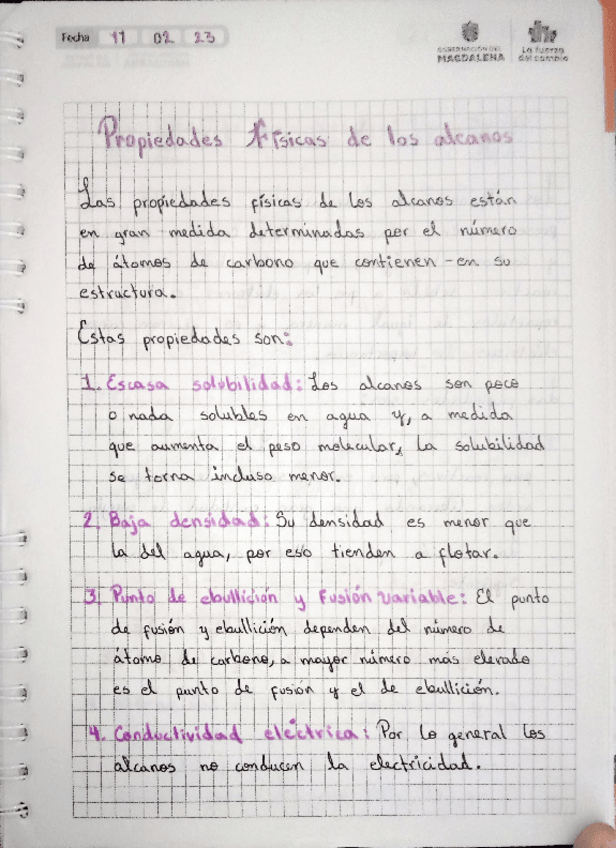 Fecha 11 02 23
GOBERNACIÓN DEL
MAGDALENA
La fuerza
del cambio
Propiedades Físicas de los alcanos
Las propiedades físicas de los alcanos están
en gran medida determinadas por el número
de átomos de carbono que contienen en su
estructura.
Estas propiedades son:
1. Escasa solubilidad: Los alcanos son poco
o nada solubles en agua y, a medida
que aumenta el peso molecular, la solubilidad
se torna incluso menor.
2. Baja densidad: Su densidad es menor que
la del agua, por eso tienden a flotar.
3. Punto de ebullición y fusión variable: El punto
de fusión y ebullición dependen del número de
átomo de carbono, a mayor número más elevado
es el punto de fusión y el de ebullición.
4. Conductividad eléctrica: Por lo general los
alcanos no conducen la electricidad.